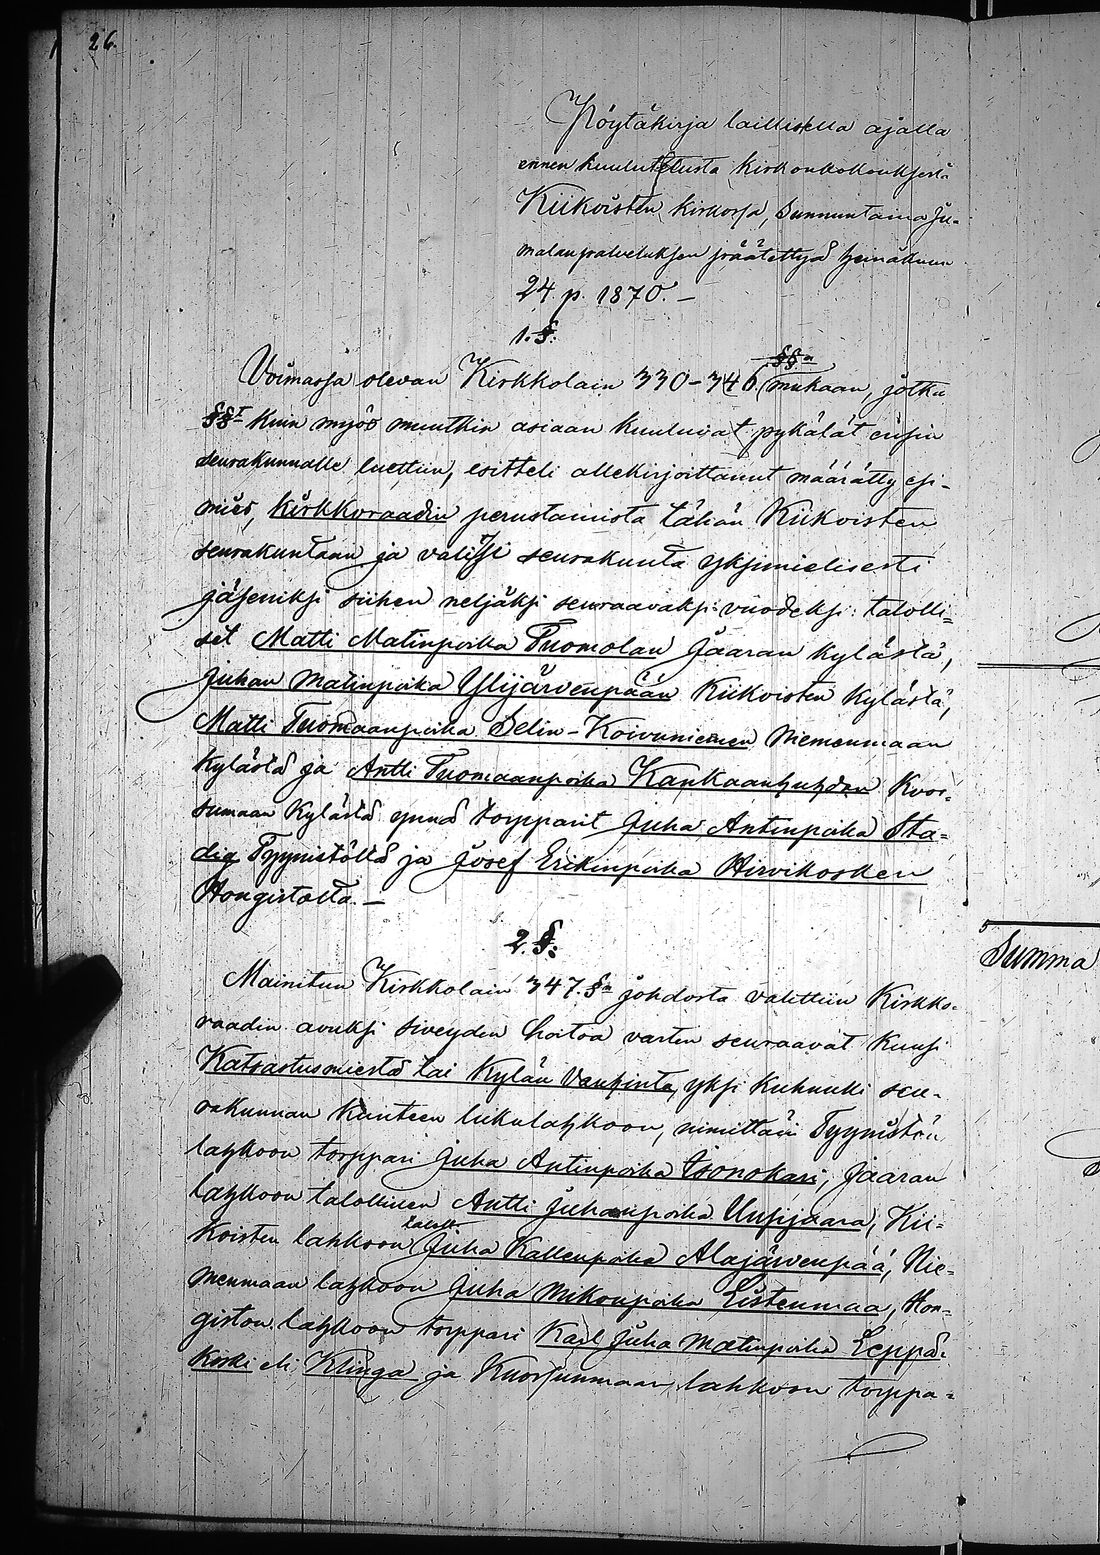 26.
Pöytäkirja laillisella ajalla
ennen kuulutetusta kirkonkokouksesta
Kiikoisten kirkossa, sunnuntaina Ju-
malanpalveluksen päätettyä heinäkuun
24 p. 1870. –
1. §:
Voimassa olevan Kirkkolain 330–346 §§n mukaan, jotka
§§t kuin myös muutkin asiaan kuuluvat pykälät ensin
seurakunnalle luettiin, esitteli allekirjoittanut määrätty esi-
mies, kirkkoraadin perustamista tähän Kiikoisten
seurakuntaan ja valitsi seurakunta yksimielisesti
jäseniksi siihen neljäksi seuraavaksi vuodeksi: talolli-
set Matti Matinpoika Tuomolan Jaaran kylästä,
Juhan Matinpoika Ylijärvenpään Kiikoisten kylästä,
Matti Tuomaanpoika Selin-Koivuniemen Niemenmaan
kylästä ja Antti Tuomaanpoika Kankaanhuhdan Kuor-
sumaan kylästä ynnä torpparit Juha Antinpoika Sta-
dig Tyynistöltä ja Josef Erikinpoika Hirvikosken
Hongistolta. –
2. §:
Mainitun Kirkkolain 347. §n johdosta valittiin Kirkko-
raadin avuksi siveyden hoitoa varten seuraavat kuusi
Katsastusmiestä tai Kylän Vanhinta, yksi kuhunki seu-
rakunnan kunteen lukulahkoon, nimittäin Tyynistön
lahkoon torppari Juha Antinpoika Isonokari, Jaaran
lahkoon talollinen Antti Juhanpoika Uusijaara, Kii-
koisten lahkoon taloll. Juha Kallenpoika Alajärvenpää, Nie-
menmaan lahkoon Juha Mikonpoika Eistenmaa, Hon-
giston lahkoon torppari Karl Juha Matinpoika Leppä-
koski eli Klinga ja Kuorsunmaan lahkoon torppa-
Summa